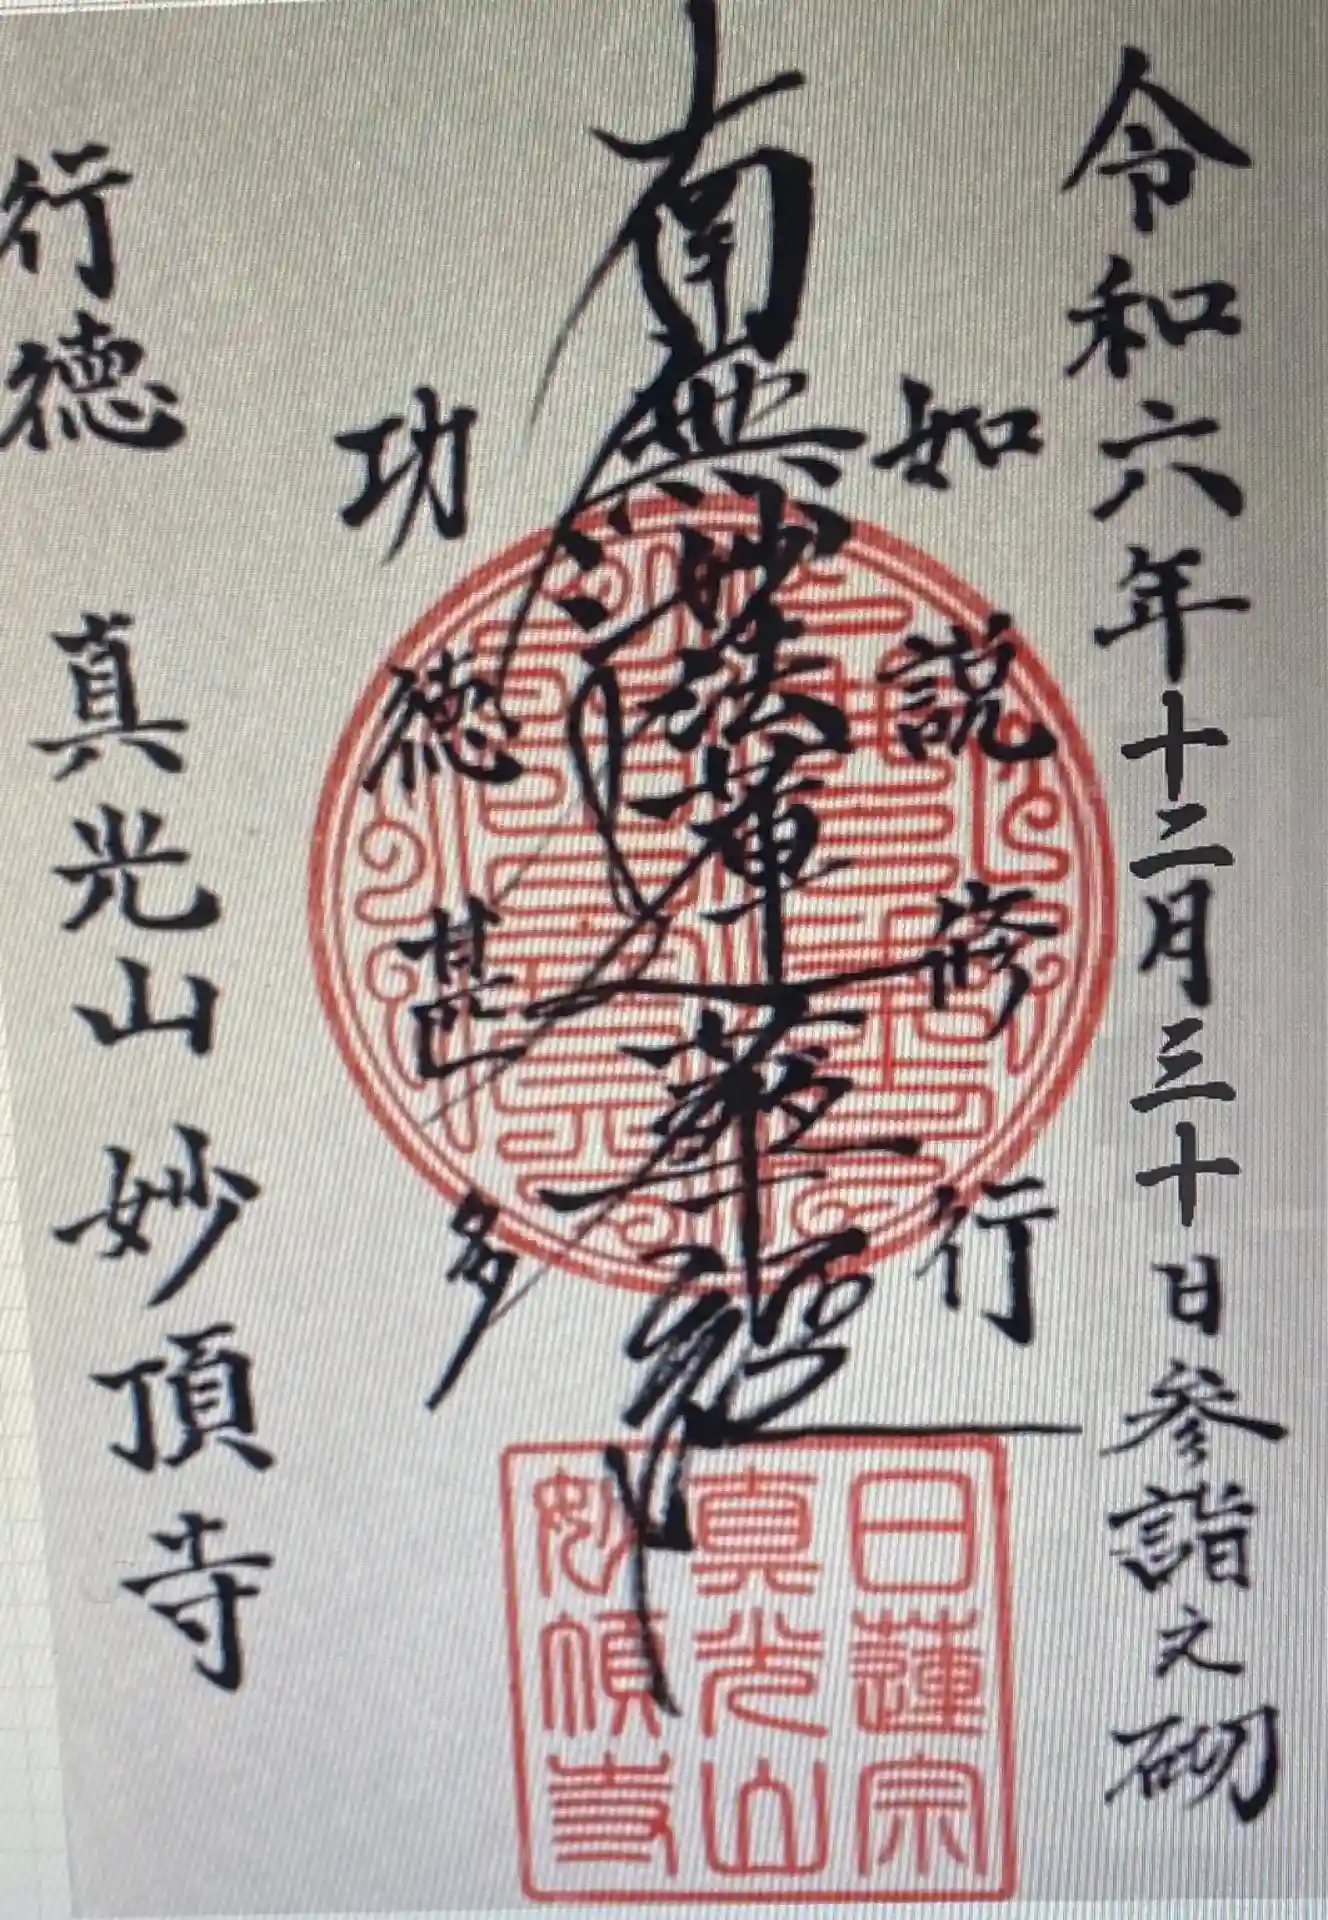 令和六年十二月三十日参詣之砌
如説修行
南無妙法蓮華経
功徳甚多
行徳 真光山 妙頂寺
日蓮宗
真光山
妙頂寺